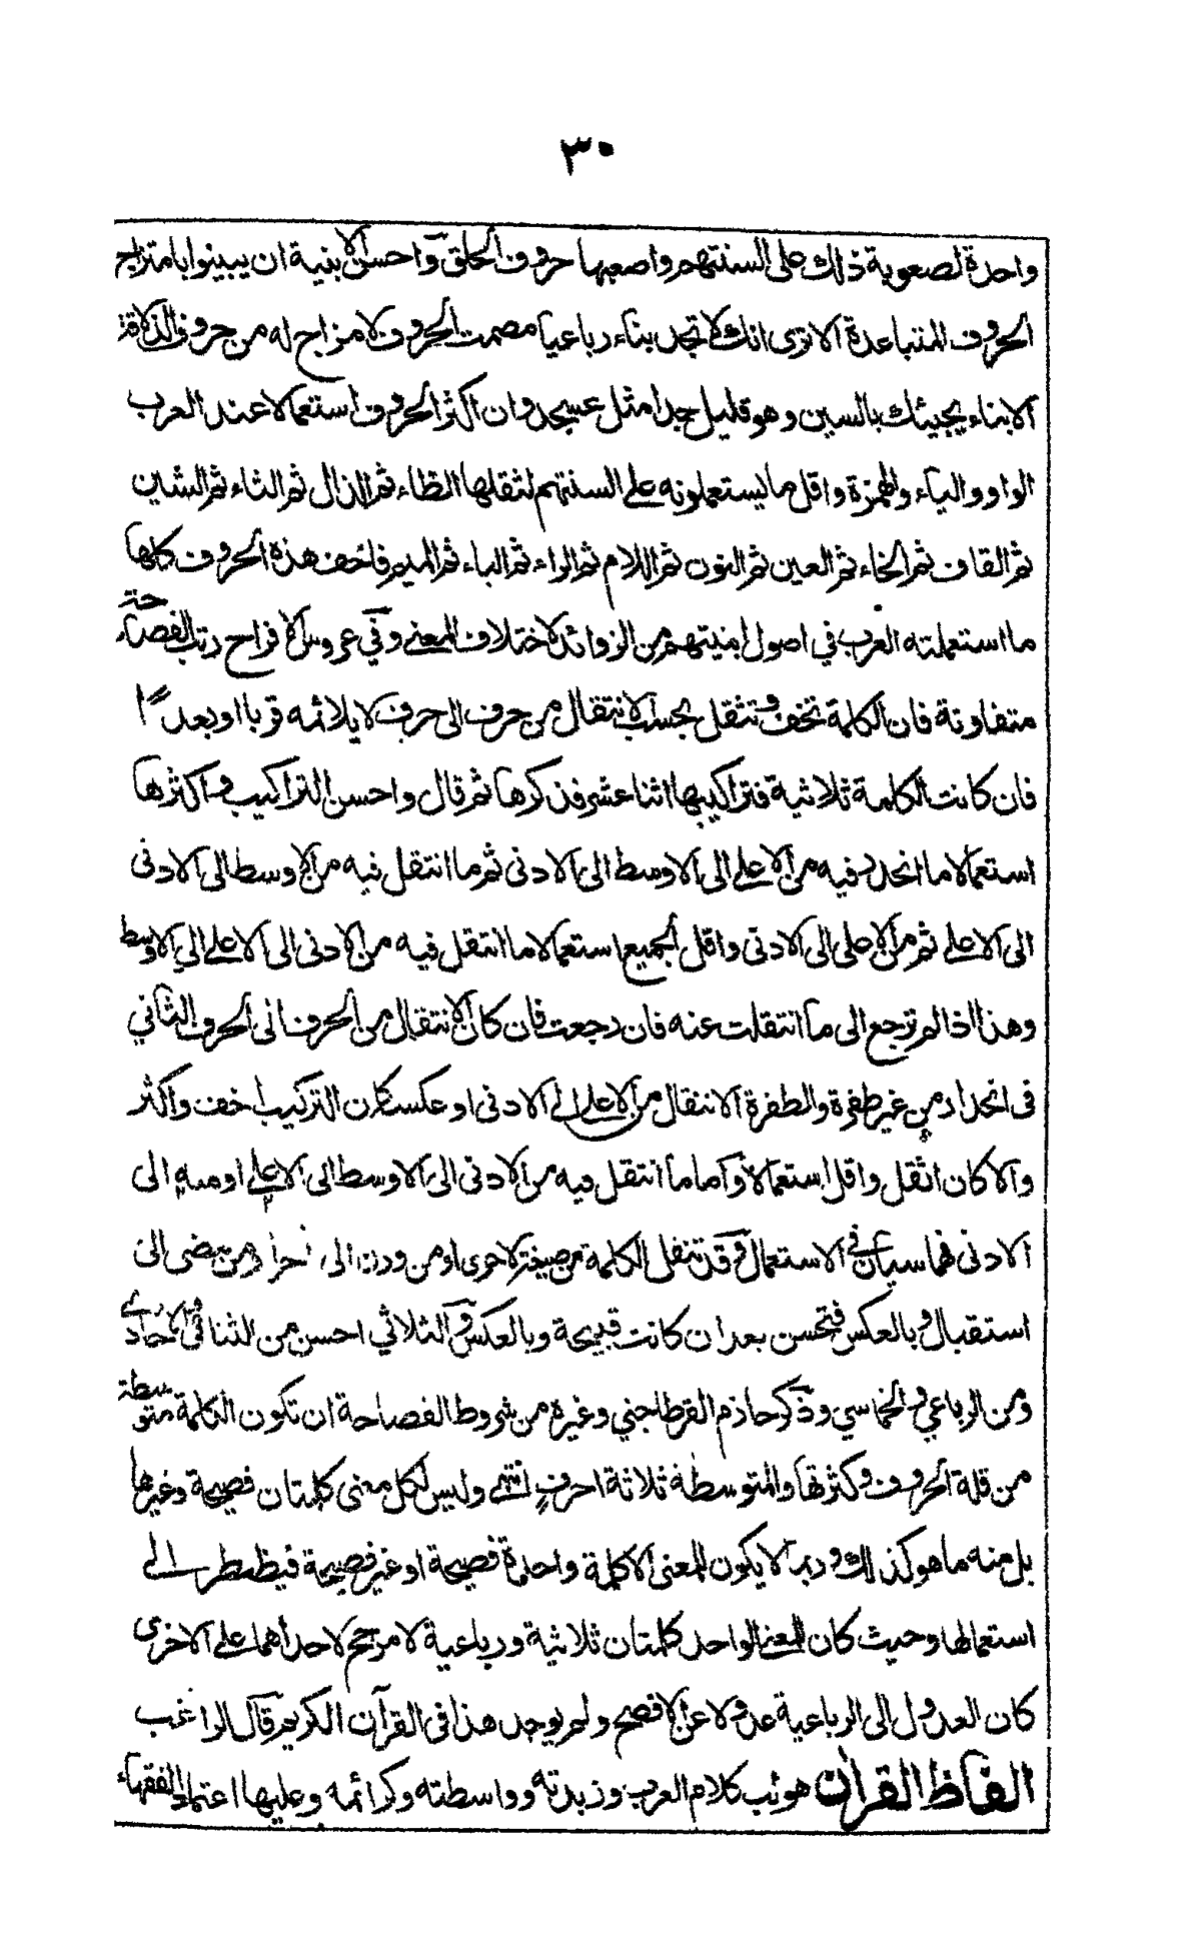 ٣٠
واحدة لصعوبة ذلك على السنتهم واصعبها حروف الحلق واحسن الابنية ان يبينوا بامتزاج
الحروف المتباعدة الا ترى انك لا تجد بناء رباعيا مصمت الحروف لا مزاج له من حروف الذلاقة
الا بناء يجيئك بالسين وهو قليل جدا مثل عسجد وان اكثر الحروف استعمالا عند العرب
الواو والياء والهمزة واقل ما يستعملونه على السنتهم لثقلها الظاء ثم الذال ثم الثاء ثم الشين
ثم القاف ثم الخاء ثم العين ثم النون ثم اللام ثم الراء ثم الباء ثم الميم فاخف هذه الحروف كلها
ما استعملته العرب في اصول ابنيتهم من الزوائد لاختلاف المعنى وفي عروس الافراح رتب الفصاحة
متفاوتة فان الكلمة تخف وتثقل بحسب الانتقال من حرف الى حرف لا يلائمه قربا او بعدا
فان كانت الكلمة ثلاثية فتراكيبها اثنا عشر فذكرها ثم قال واحسن التراكيب واكثرها
استعمالا ما انحدر فيه من الاعلى الى الاوسط الى الادنى ثم ما انتقل فيه من الاوسط الى الادنى
الى الاعلى ثم من الاعلى الى الادنى واقل الجميع استعمالا ما انتقل فيه من الادنى الى الاعلى الى الاوسط
وهذا اذا لم ترجع الى ما انتقلت عنه فان رجعت فان كان الانتقال من الحرف الى الحرف الثاني
فى انحدار من غير طفرة والطفرة الانتقال من الاعلى الى الادنى او عكسه كان التركيب اخف واكثر
والا كان اثقل واقل استعمالا واما ما انتقل فيه من الادنى الى الاوسط الى الاعلى او منه الى
الادنى فهما سيان في الاستعمال وقد تنقل الكلمة من صيغة لاخرى او من وزن الى اخر او من مضى الى
استقبال وبالعكس فتحسن بعد ان كانت قبيحة وبالعكس والثلاثي احسن من الثنائي والاحادي
ومن الرباعي والخماسي وذكر حازم القرطاجني وغيره من شروط الفصاحة ان تكون الكلمة متوسطة
من قلة الحروف وكثرتها والمتوسطة ثلاثة احرف انتهى وليس لكل معنى كلمتان فصيحة وغيرها
بل منه ما هو كذلك وربما لا يكون للمعنى الا كلمة واحدة فصيحة او غير فصيحة فيظطر الى
استعمالها وحيث كان للمعنى الواحد كلمتان ثلاثية ورباعية لا مرجح لاحداهما على الاخرى
كان العدول الى الرباعية عدولا عن الافصح ولم يوجد هذا فى القرآن الكريم قال الراغب
الفاظ القران هو لب كلام العرب وزبدته وواسطته وكرائمه وعليها اعتماد الفقهاء